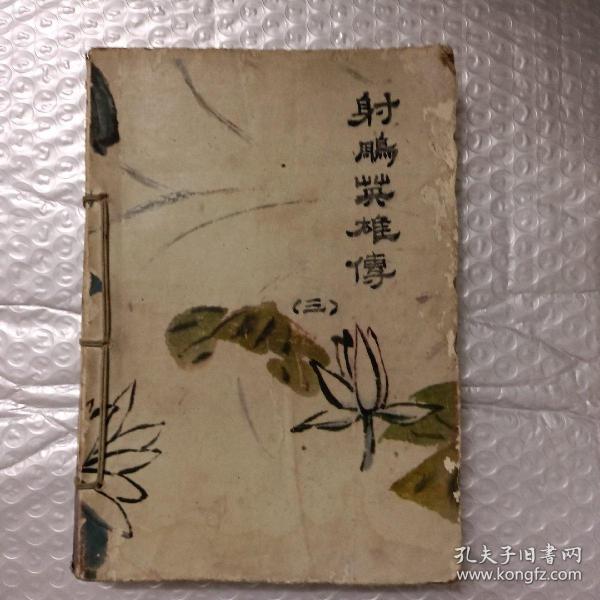 射鵰英雄傳
(三)
孔夫子旧书网
www.kongfz.com